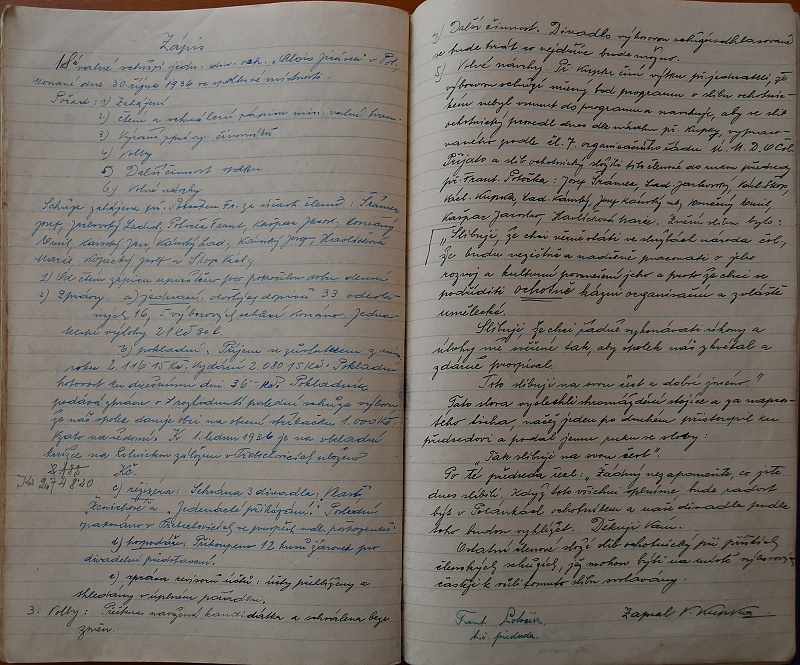 Zápis
valné schůzi jedn. div. och. „Alois Jirásek" v Pol.
konané dne 30. října 1936 ve spolkové místnosti.
Pořad: 1) Zahájení
2) čtení a schválení zápisu min. valné hrom.
3) Výroční zprávy činovníků
4) Volby
5) Další činnost spolku
6) Volné návrhy
Schůze zahájena př. Potočkem Fr. za účasti členů: Šrámek
Josef, Jarkovský Ladisl, Potoček Frant, Kašpar Jarosl, Konečný
Emil, Kánský Jan, Kánský Lad, Kánský Josef, Havlíčková
Marie, Josef a Skop Václ,
1) Od čtení zápisu upuštěno pro pokročilou dobu denní
2) Zprávy. a) jednací. došlých dopisů 33 odeslaných
16, 5 výborových schůzí konáno. Jednatelské
výlohy 21 Kč 30 h.
b) pokladní. Příjem se zůstatkem z min.
roku 2.116·15 Kč. Vydání 2.080·15 Kč. Pokladní
hotovost ku dnešnímu dni 36·- Kč. Pokladník
podává zprávu o rozhodnutí poslední schůze výboru
že náš spolek daruje obci na obecní stříkačku 1.000 Kč
Vzato na vědomí. K 1. lednu 1936 je na vkladní
knížce na Rolnickou záložnu v Třebechovicích uloženo
Kč
Kč 2748·20
c) režiséra: Sehrána 3 divadla:
Ženichové a „Jedenácté přikázání." Poslední
opakováno v Třebechovicích ve prospěch
d) hospodáře. Přikoupeno 12 kusů žárovek pro
divadelní představení.
e) zpráva revisorů účtů: účty přehlíženy a
shledány v úplném pořádku.
3. Volby: Přečtena navržená kandidátka a schválena beze
změn.
4) Další činnost. Divadlo výborovou schůzí odhlasované
se bude hrát co nejdříve bude možno.
5) Volné návrhy. Př. Kupka činí výtku př. jednateli, že
výborovou schůzí míněný bod programu o slibu ochotnickém
nebyl vsunut do programu a navrhuje, aby se slib
ochotnický provedl dnes dle návrhu př. Kupky, vypracovaného
podle čl. 7. organisačního řádu Ú. M. D. O. Čsl.
Přijato a slib ochotnický složili tito členové do rukou předsedy
př. Frant. Potočka: Josef Šrámek, Lad. Jarkovský, Václ. Skop,
Václ. Kupka, Lad. Kánský, Josef Kánský ml. Konečný Emil,
Kašpar Jaroslav, Havlíčková Marie. Znění slibu bylo:
„Slibuji, že chci věrně státi ve službách národa čsl.,
že budu nezištně a nadšeně pracovati o jeho
rozvoj a kulturní povznešení jeho a proto že chci se
podříditi ochotně kázni organisační a zvláště
umělecké.
Slibuji že chci řádně vykonávati úkony a
úlohy mě svěřené tak, aby spolek náš zkvétal a
zdárně prospíval.
Toto slibuji na svou čest a dobré jméno."
Tato slova vyslechli shromáždění stojíce a za naprostého
ticha, načež jeden po druhém přistoupil ku
předsedovi a podal jemu ruku se slovy:
„Tak slibuji na svou čest."
Po té předseda řekl: „Žádný nezapomeňte, co jste
dnes slíbili. Když toto všichni splníme, bude radost
býti v ochotníkem a naše divadla podle
toho budou vyhlížet. Děkuji Vám.
Ostatní členové složí slib ochotnický při příštích
členských schůzích, jež mohou býti na místě výborových
častěji k vůli tomuto slibu svolávány.
Frant. Potoček
t. č. předseda.
Zapsal V. Kupka